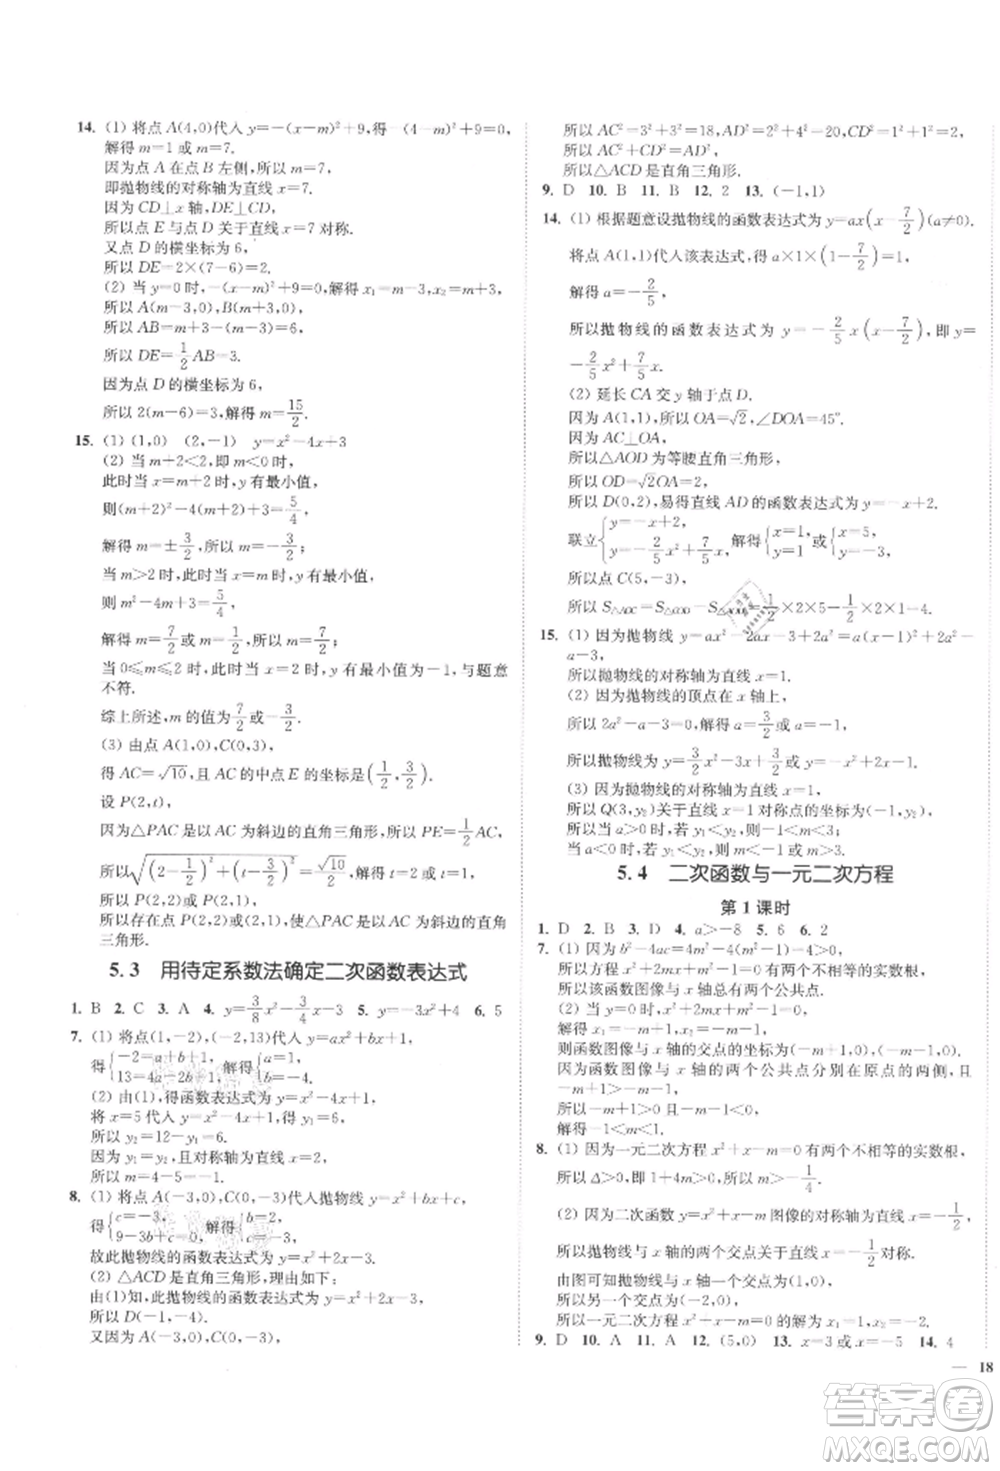 14. (1) 将点 A(4,0)代入 y=-(x-m)²+9,得-(4-m)²+9=0,
解得 m=1 或 m=7.
因为点 A 在点 B 左侧,所以 m=7,
即抛物线的对称轴为直线 x=7.
因为 CD⊥x 轴,DE⊥CD,
所以点 E 与点 D 关于直线 x=7 对称.
又点 D 的横坐标为 6,
所以 DE=2×(7-6)=2.
(2) 当 y=0 时,-(x-m)²+9=0,解得 x₁=m-3,x₂=m+3,
所以 A(m-3,0),B(m+3,0),
所以 AB=m+3-(m-3)=6,
所以 DE=1/2 AB=3.
因为点 D 的横坐标为 6,
所以 2(m-6)=3,解得 m=15/2.
15. (1) (1,0) (2,-1) y=x²-4x+3
(2) 当 m+2<2 时,即 m<0 时,
此时当 x=m+2 时,y 有最小值,
则(m+2)²-4(m+2)+3=5/4,
解得 m=±3/2,所以 m=-3/2;
当 m>2 时,此时当 x=m 时,y 有最小值,
则 m²-4m+3=5/4,
解得 m=7/2 或 m=1/2,所以 m=7/2;
当 0≤m≤2 时,此时 y 有最小值为-1,与题意
不符.
综上所述,m 的值为7/2或-3/2.
(3) 由点 A(1,0),C(0,3),
得 AC=√10,且 AC 的中点 E 的坐标是(1/2,3/2).
设 P(2,t),
因为△PAC 是以 AC 为斜边的直角三角形,所以 PE=1/2 AC,
所以√((2-1/2)²+(t-3/2)²)=√10/2,解得 t=2 或 t=1,
所以存在点 P(2,2)或P(2,1),使△PAC 是以 AC 为斜边的直角
三角形.
5.3 用待定系数法确定二次函数表达式
1. B 2. C 3. A 4. y=3/8x²-3/4x-3 5. y=-3x²+4 6. 5
7. (1) 将点(1,-2),(-2,13)代入 y=ax²+bx+1,
得{-2=a+b+1, 13=4a-2b+1, 解得{a=1, b=-4.
(2) 由(1),得函数表达式为 y=x²-4x+1,
将 x=5 代入 y=x²-4x+1,得 y₁=6,
所以 y₂=12-y₁=6.
因为 y₁=y₂,且对称轴为直线 x=2,
所以 m=4-5=-1.
8. (1) 将点 A(-3,0),C(0,-3)代入抛物线 y=x²+bx+c,
得{c=-3, 9-3b+c=0, 解得{b=2, c=-3.
故此抛物线的函数表达式为 y=x²+2x-3.
(2) △ACD 是直角三角形,理由如下:
由(1)知,此抛物线的函数表达式为 y=x²+2x-3=(x+1)²-4,
所以 D(-1,-4).
又因为 A(-3,0),C(0,-3),
所以 AC²=3²+3²=18,AD²=2²+4²=20,CD²=1²+1²=2,
所以 AC²+CD²=AD²,
所以△ACD 是直角三角形.
9. D 10. B 11. B 12. 2 13. (-1,1)
14. (1) 根据题意设抛物线的函数表达式为 y=ax(x-7/2)(a≠0).
将点 A(1,1)代入该表达式,得 a×1×(1-7/2)=1,
解得 a=-2/5,
所以抛物线的函数表达式为 y=-2/5x(x-7/2),即 y=
-2/5x²+7/5x.
(2) 延长 CA 交 y 轴于点 D.
因为 A(1,1),所以 OA=√2,∠DOA=45°.
因为 AC⊥OA,
所以△AOD 为等腰直角三角形,
所以 OD=√2OA=2,
所以 D(0,2),易得直线 AD 的函数表达式为 y=-x+2.
联立{y=-x+2, y=-2/5x²+7/5x, 解得{x=1, y=1 或{x=5, y=-3,
所以点 C(5,-3),
所以 S△AOC=S△COD-S△AOD=1/2×2×5-1/2×2×1=4.
15. (1) 因为抛物线 y=ax²-2ax-3+2a²=a(x-1)²+2a²-
a-3.
所以抛物线的对称轴为直线 x=1.
(2) 因为抛物线的顶点在 x 轴上,
所以 2a²-a-3=0,解得 a=3/2或 a=-1,
所以抛物线为 y=3/2x²-3x+3/2或 y=-x²+2x-1.
(3) 因为抛物线的对称轴为直线 x=1,
所以 Q(3,y₂)关于直线 x=1 对称点的坐标为(-1,y₂).
所以当 a>0 时,若 y₁<y₂,则-1<m<3;
当 a<0 时,若 y₁<y₂,则 m<-1 或 m>3.
5.4 二次函数与一元二次方程
第 1 课时
1. D 2. B 3. D 4. a>-8 5. 6 6. 2
7. (1) 因为 b²-4ac=4m²-4(m²-1)=4>0,
所以方程 x²+2mx+m²-1=0 有两个不相等的实数根,
所以该函数图像与 x 轴总有两个公共点.
(2) 当 y=0 时,x²+2mx+m²-1=0,
解得 x₁=-m-1,x₂=-m+1,
则函数图像与 x 轴的交点为(-m-1,0),(-m+1,0).
因为函数图像与 x 轴的两个公共点分别在原点的两侧,
所以-m+1>0 且-m-1<0,
解得-1<m<1.
8. (1) 因为一元二次方程 x²+x-m=0 有两个不相等的实数根,
所以 Δ>0,即 1+4m>0,所以 m>-1/4.
(2) 因为二次函数 y=x²+x-m 图像的对称轴为直线 x=-1/2,
所以抛物线与 x 轴两个交点关于直线 x=-1/2 对称.
由图可知抛物线与 x 轴的一个交点为(1,0),
所以另一个交点为(-2,0),
所以一元二次方程 x²+x-m=0 的解为 x₁=1,x₂=-2.
9. D 10. A 11. A 12. (5,0) 13. x=3 或 x=-5 14. 4
— 18
答案圈
MXQE.COM